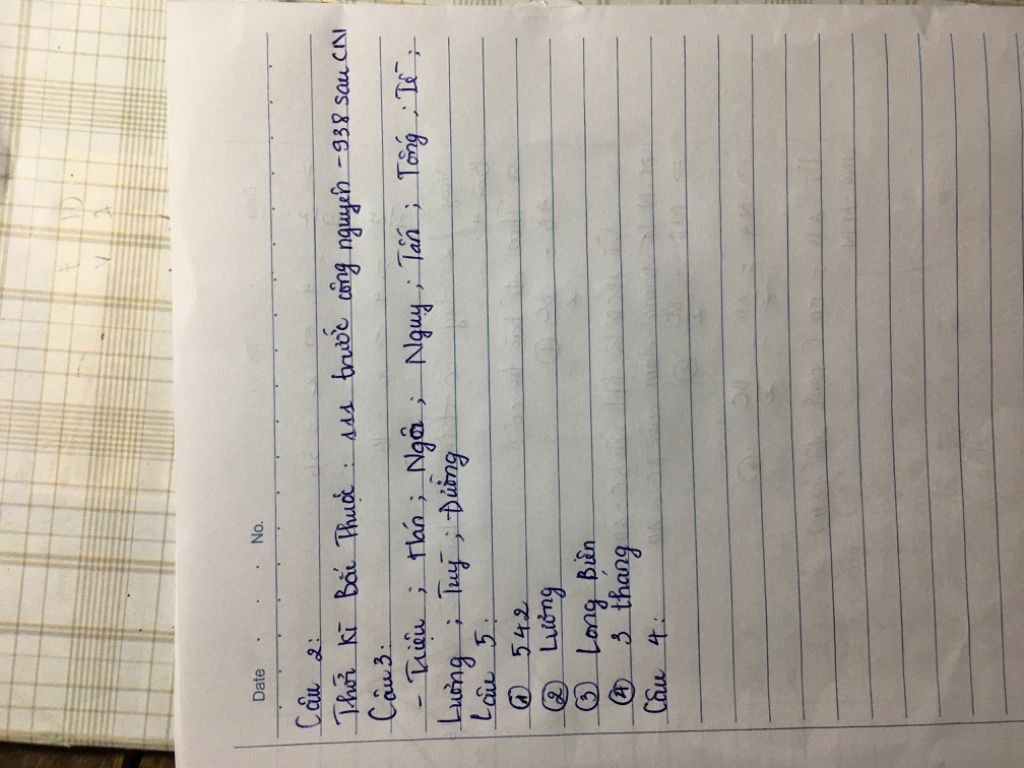 Date . . . No.
Câu 2:
Thời kì Bắc Thuộc : 111 trước công nguyên - 938 sau CN
Câu 3:
- Triệu ; Hán ; Ngô ; Nguy ; Tấn ; Tống ; Tề ;
Lương ; Tuỳ ; Đường
Câu 5:
① 542
② Lương
③ Long Biên
④ 3 tháng
Câu 4: